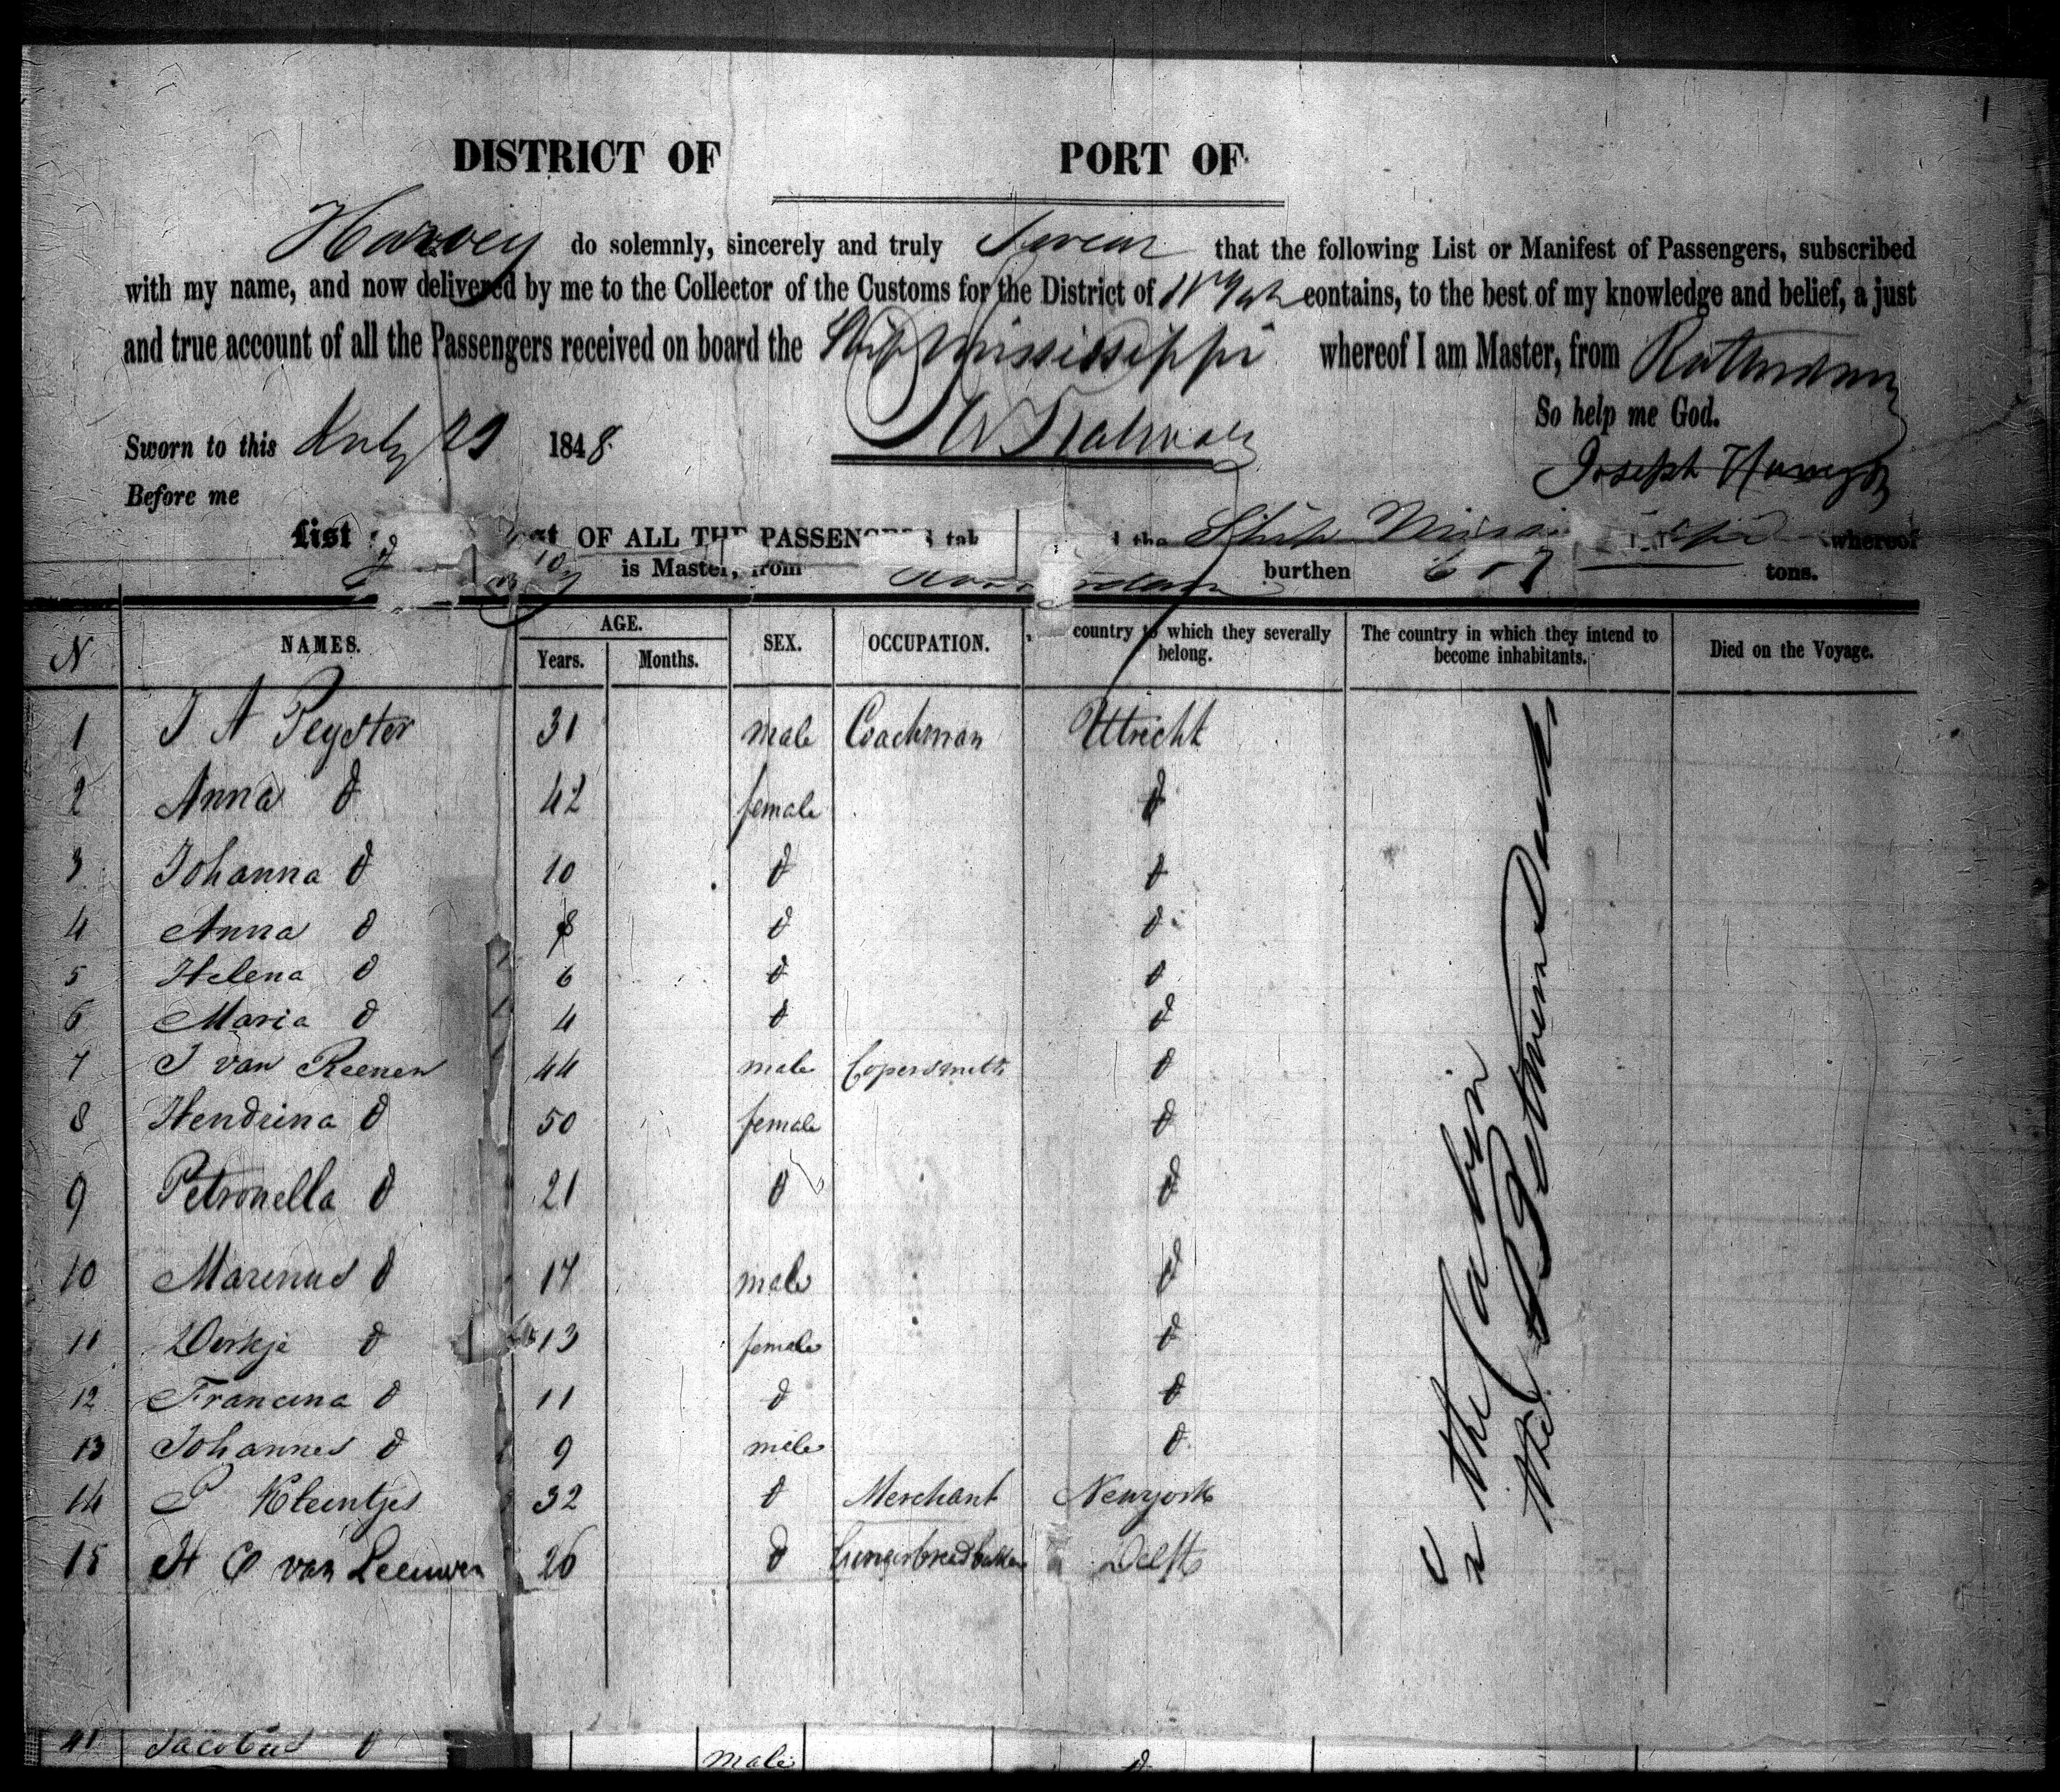 DISTRICT OF PORT OF
Harvey do solemnly, sincerely and truly Swear that the following List or Manifest of Passengers, subscribed
with my name, and now delivered by me to the Collector of the Customs for the District of N York contains, to the best of my knowledge and belief, a just
and true account of all the Passengers received on board the Ship Mississippi whereof I am Master, from
So help me God.
Sworn to this July 29 1848
Joseph Harvey
Before me
List OF ALL THE PASSENGERS tak the Ship whereof
is Master, from burthen tons.
N NAMES. AGE. Years. Months. SEX. OCCUPATION. country to which they severally belong. The country in which they intend to become inhabitants. Died on the Voyage.
1 J A Peyster 31 male Coachman Uttricht
2 Anna d 42 female d
3 Johanna d 10 d d
4 Anna d 8 d d
5 Helena d 6 d d
6 Maria d 4 d d
7 J van Reenen 44 male Copersmith d
8 Hendrina d 50 female d
9 Petronella d 21 d d
10 Marinus d 17 male d
11 Derkje d 13 female d
12 Francina d 11 d d
13 Johannes d 9 male d
14 P Kleintjes 32 d Merchant Newyork
15 H C van Leeuwen 26 d Gingerbreadbakker Delft
In the Cabin
the
41 Jacobus d male d